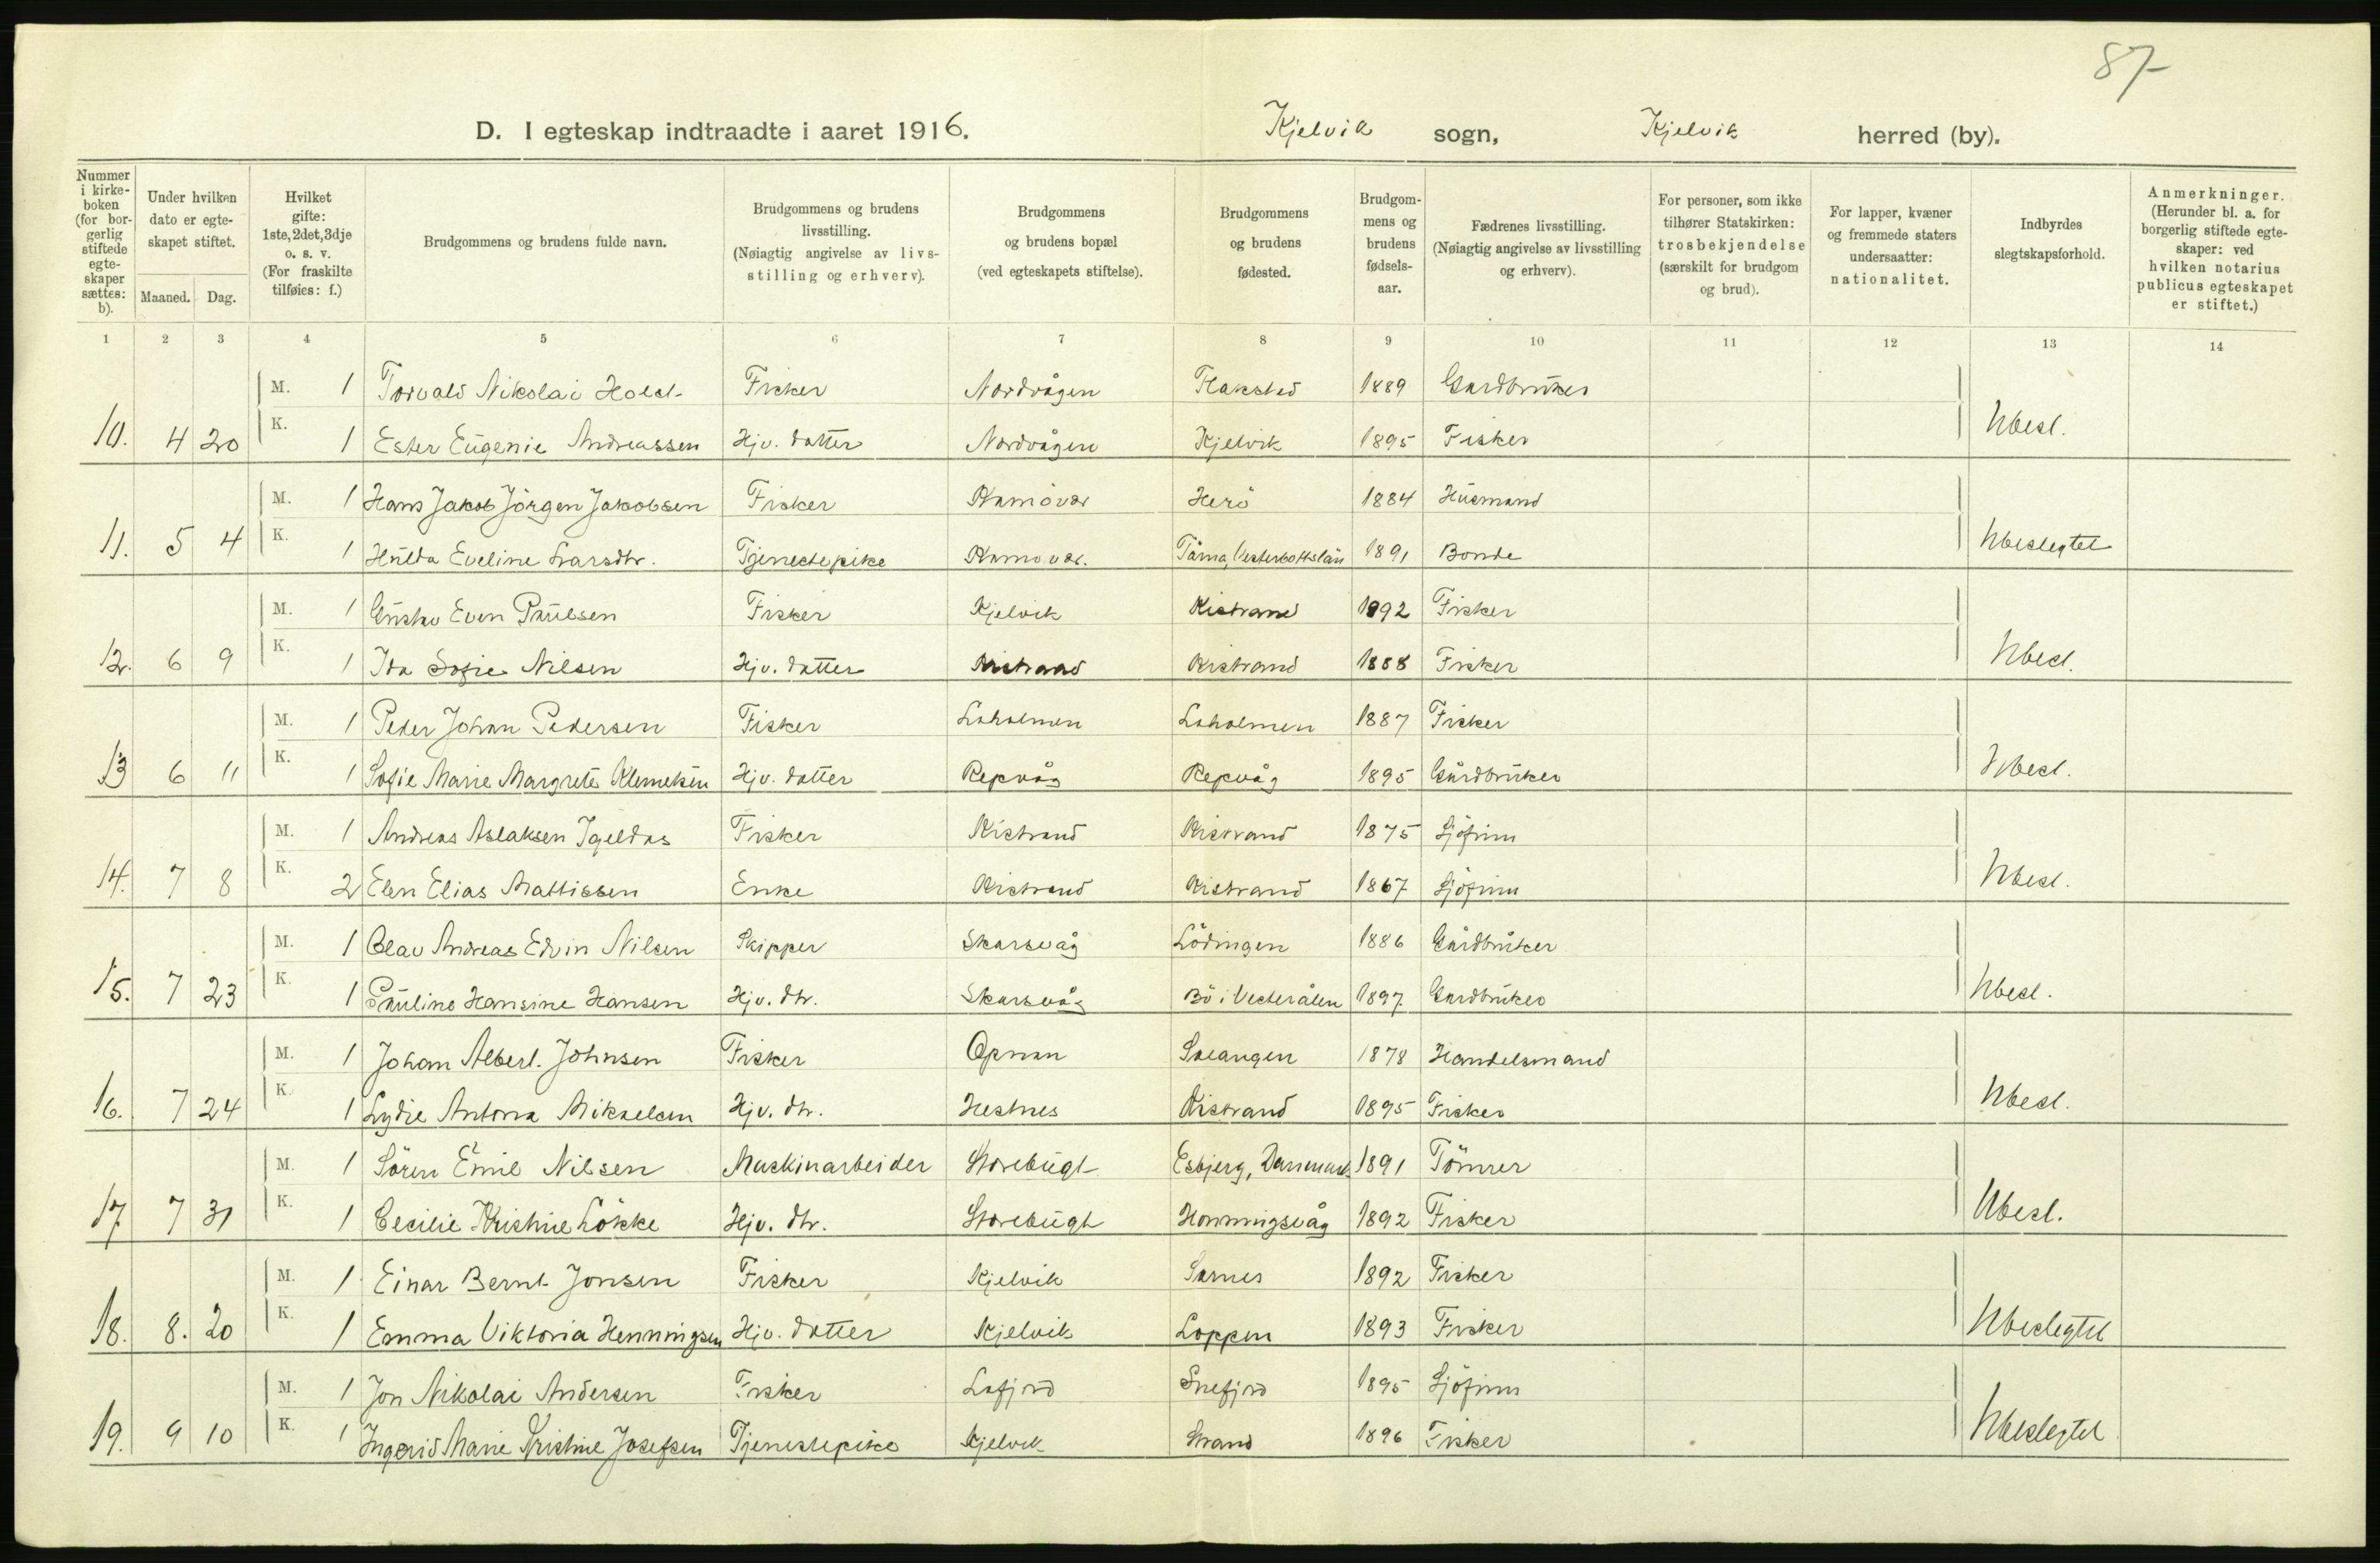 87
D. I egteskap indtraadte i aaret 1916. Kjelvik sogn, Kjelvik herred (by).
Nummer i kirke- boken (for bor- gerlig stiftede egte- skaper sættes: b).
Under hvilken dato er egte- skapet stiftet.
Maaned. Dag.
Hvilket gifte: 1ste, 2det, 3dje o. s. v. (For fraskilte tilføies: f.)
Brudgommens og brudens fulde navn.
Brudgommens og brudens livsstilling. (Nøiagtig angivelse av livs- stilling og erhverv).
Brudgommens og brudens bopæl (ved egteskapets stiftelse).
Brudgommens og brudens fødested.
Brudgom- mens og brudens fødsels- aar.
Fædrenes livsstilling. (Nøiagtig angivelse av livsstilling og erhverv).
For personer, som ikke tilhører Statskirken: trosbekjendelse (særskilt for brudgom og brud).
For lapper, kvæner og fremmede staters undersaatter: nationalitet.
Indbyrdes slegtskapsforhold.
Anmerkninger. (Herunder bl. a. for borgerlig stiftede egte- skaper: ved hvilken notarius publicus egteskapet er stiftet.)
1 2 3 4 5 6 7 8 9 10 11 12 13 14
M. 1 Torvald Nikolai Holst Fisker Nordvågen Flakstad 1889 Gårdbruker
10. 4 20 K. 1 Ester Eugenie Andreassen Hjv. datter Nordvågen Kjelvik 1895 Fisker Ubesl.
M. 1 Hans Jakob Jörgen Jakobsen Fisker Kamövær Herö 1884 Husmand
11. 5 4 K. 1 Hulda Eveline Larsdtr. Tjenestepike Kamövær. Tärna, Vesterbottslän 1891 Bonde Ubeslegtet
M. 1 Gustav Even Paulsen Fisker Kjelvik Kistrand 1892 Fisker
12. 6 9 K. 1 Ida Sofie Nilsen Hjv. datter Kistrand Kistrand 1888 Fisker Ubesl.
M. 1 Peder Johan Pedersen Fisker Loholmen Loholmen 1887 Fisker
13 6 11 K. 1 Sofie Marie Margrete Klemetsen Hjv. datter Repvåg Repvåg 1895 Gårdbruker Ubesl.
M. 1 Andreas Aslaksen Igeldas Fisker Kistrand Kistrand 1875 Sjöfinn
14. 7 8 K. 2 Elen Elias Mattissen Enke Kistrand Kistrand 1867 Sjöfinn Ubesl.
M. 1 Olav Andreas Edvin Nilsen Skipper Skarsvåg Lödingen 1886 Gårdbruker
15. 7 23 K. 1 Pauline Hansine Hansen Hjv. dtr. Skarsvåg Bö i Vesterålen 1897 Gårdbruker Ubesl.
M. 1 Johan Albert Johnsen Fisker Opnan Salangen 1878 Handelsmand
16. 7 24 K. 1 Lydie Antona Mikaelsen Hjv. dtr. Hestnes Kistrand 1895 Fisker Ubesl.
M. 1 Sören Emil Nilsen Maskinarbeider Storebugt Esbjerg, Danmark 1891 Tömrer
17 7 31 K. 1 Cecilie Kristine Lökke Hjv. dtr. Storebugt Honningsvåg 1892 Fisker Ubesl.
M. 1 Einar Bernt Jonsen Fisker Kjelvik Sarnes 1892 Fisker
18. 8. 20 K. 1 Emma Viktoria Henningsen Hjv. datter Kjelvik Loppen 1893 Fisker Ubeslegtet
M. 1 Jon Nikolai Andersen Fisker Lafjord Snefjord 1895 Sjöfinn
19. 9 10 K. 1 Ingerid Marie Kristine Josefsen Tjenestepike Kjelvik Strand 1896 Fisker Ubeslegtet